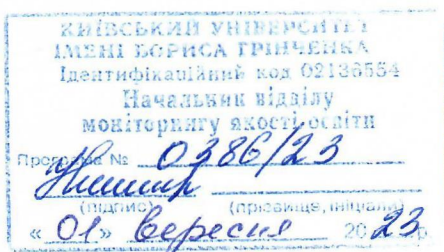 КИЇВСЬКИЙ УНІВЕРСИТЕТ
ІМЕНІ БОРИСА ГРІНЧЕНКА
Ідентифікаційний код 02136554
Начальник відділу
моніторингу якості освіти
Програма № 0386/23
(підпис) (прізвище, ініціали)
« 01 » вересня 2023 р.